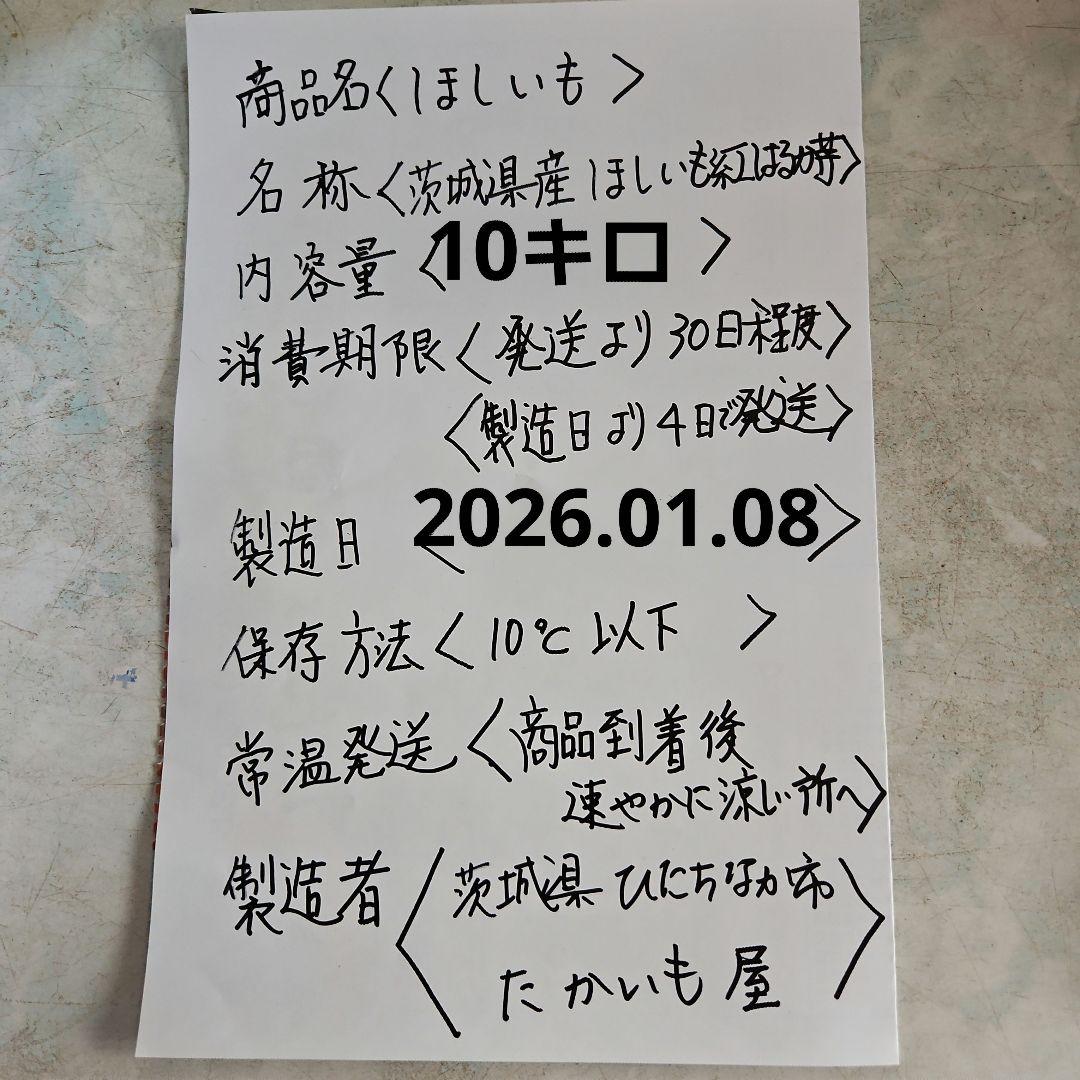 商品名〈ほしいも〉
名称〈茨城県産ほしいも紅はるか芋〉
内容量〈10キロ〉
消費期限〈発送より30日程度〉
〈製造日より4日で発送〉
製造日〈2026.01.08〉
保存方法〈10℃以下〉
常温発送〈商品到着後
速やかに涼しい所へ〉
製造者〈茨城県ひたちなか市
たかいも屋〉